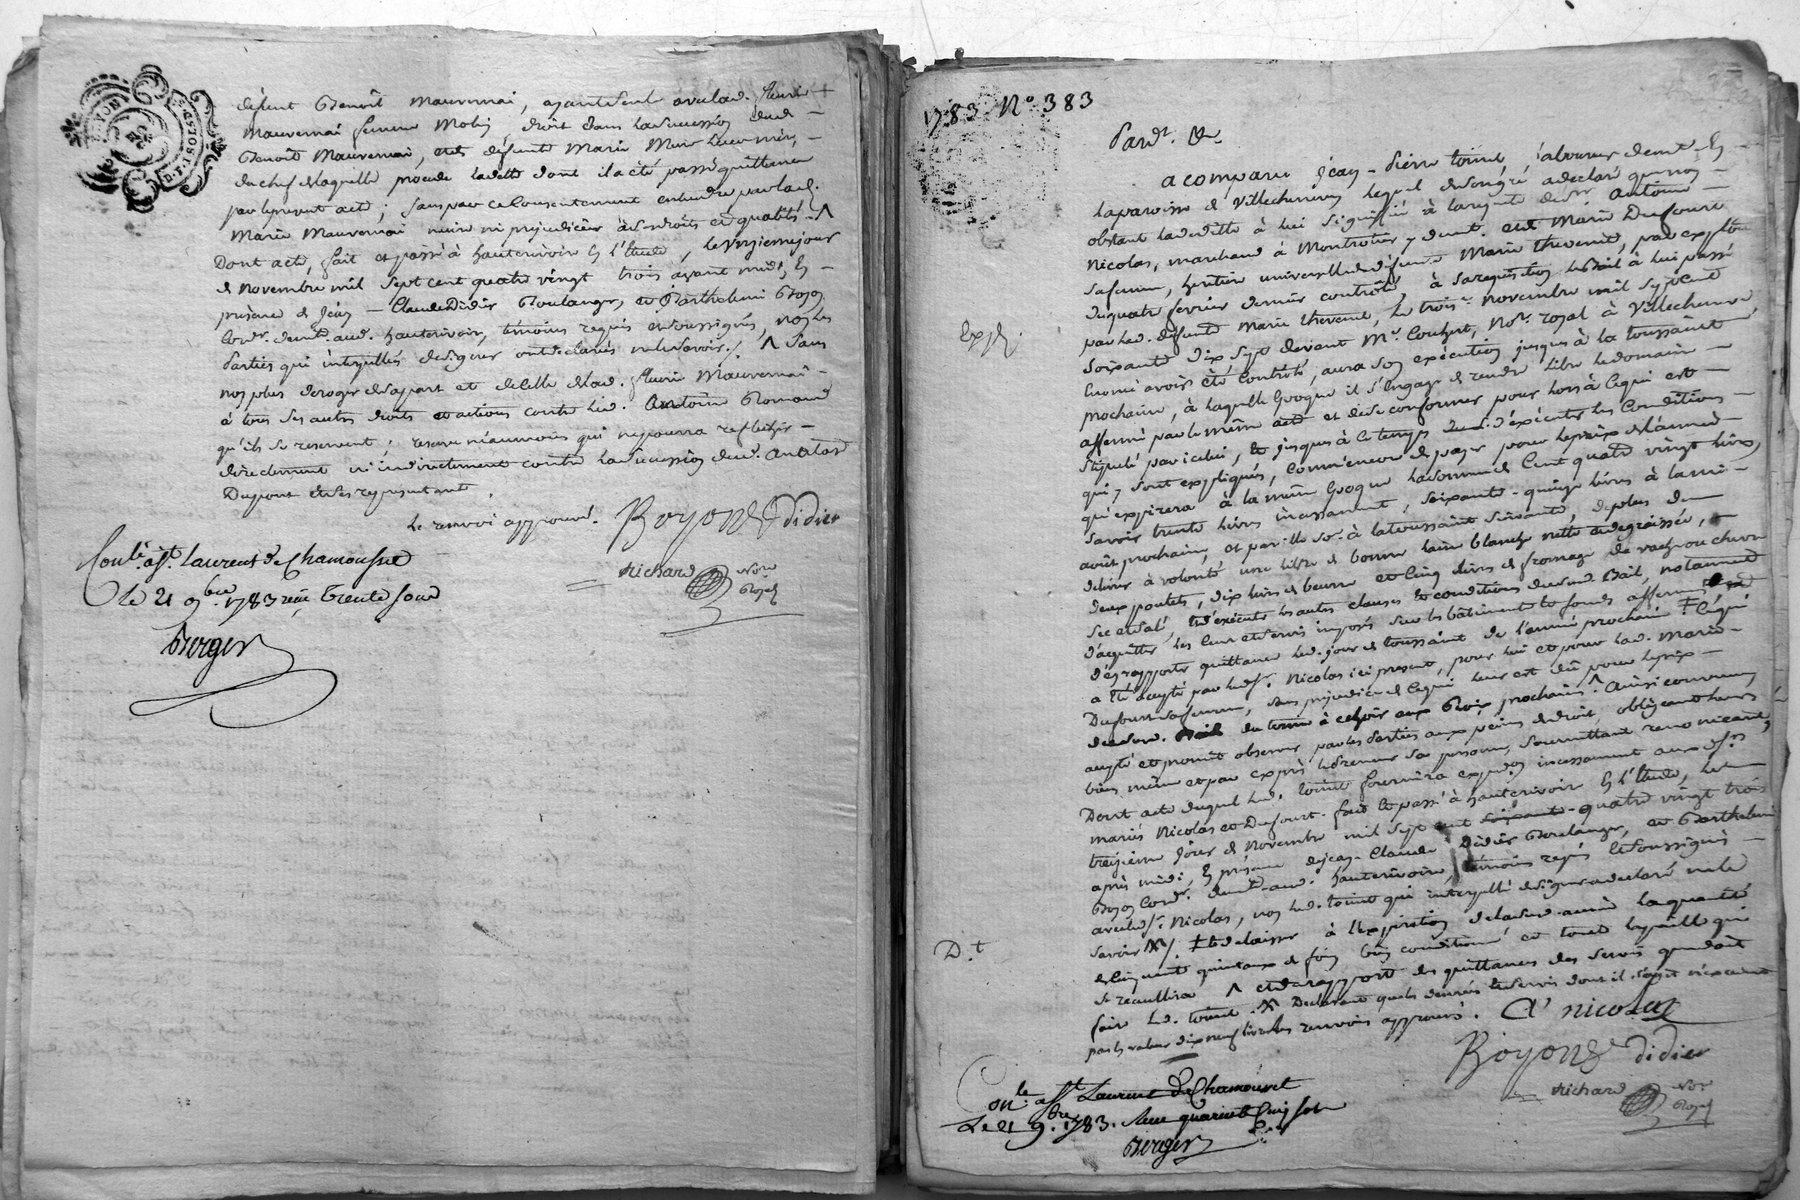 défunt Benoît Mauvernai, ayant seul avec lad. fleurie +
Mauvernai femme Molin, droit dans la succession dud. –
Benoît Mauvernai, et de défunte Marie Mure leur mère, –
du chef de laquelle procede la dette dont il a été passé quittance
par le présent acte; sans que ce consentement entendre par lad.
Marie Mauvernai nuire ni prejudicier à ses droits et qualités. Λ
Dont acte, fait et passé à hauterivoire En l'Etude, le onzieme jour
de novembre mil sept cent quatre vingt trois avant midi, En –
présence de Jean – Claude Didier Boulanger, et Barthelemi Boyon
Cordr. demt. aud. hauterivoire, témoins requis et soussignés, non les
Parties qui interpellées de signer ont declaré ne le savoir ./. Λ Sans
non plus deroger de sa part et de celle de lad. fleurie Mauvernai –
à tous ses autres droits et actions contre led. Antoine Romand
qu'ils se reservent; reserve néanmoins qui ne pourra reflechir –
directement ni indirectement contre la succession dud. Antoine
Dupont et ses representants.
le renvoi approuvé. Boyon Didier
Richard Nore Royal
Conlé. à St. Laurent de Chamousset
Le 21 9bre. 1783 reçu trente sous
Berger
1783 N° 383
Pardt. &c
a comparu Jean – Pierre toinet, laboureur demt. En –
la paroisse de Villechenève, lequel de son gré a declaré que non –
obstant la dedite à lui signifiée à la requête de Sr Antoine –
Nicolas, marchand à Montrotier y demt. et de Marie Dufourt
sa femme, heritière universelle de defunte Marie thevenet, par exploit
du quatre fevrier dernier controlé, à sa requisition le Bail à lui passé
par lad. defunte Marie thevenet, le trois novembre mil sept cent
soixante dix sept devant Me. Couhert, Nore. royal à Villechenève,
Expé.
énoncé avoir été controlé, aura son exécution jusques à la toussaint
prochaine, à laquelle époque il s'engage de rendre libre le domaine –
affermé par le même acte et de se conformer pour lors à ce qui est –
stipulé par icelui, & jusques à ce temps d'exécuter les conditions –
qui y sont expliquées, comme encore de payer pour le prix de l'année
qui expirera à la même époque la somme de Cent quatre vingt livres,
savoir trente livres incessamment, soixante – quinze livres à la mi –
août prochain, et pareille so. à la toussaint suivante, de plus de
delivrer à volonté une livre de bonne laine blanche nette et degraissée, –
deux poulets, dix livres de beurre et cinq livres de fromage de vache ou chevre
sec et salé, & d'exécuter les autres clauses & conditions dudit Bail, notamment
d'acquitter les Cens et servis imposés sur les bâtiments & fonds affermés
d'en rapporter quittance led. jour de toussaint de l'année prochaine ‡ Ce qui
a été accepté par led. Sr. Nicolas ici présent, pour lui et pour lad. Marie –
Dufourt sa femme, sans prejudice de ce qui leur est dû pour le prix –
dudit du terme à echoir aux Rois prochains. Λ Ainsi convenu,
accepté et promis observer par les Parties aux peines de droit, obligeant leurs
biens même et par exprès led. preneur sa personne, soumettant renonciant,
Dont acte duquel led. toinet fournira expédon incessamment aux dts.
mariés Nicolas et Dufourt. fait & passé à hauterivoire En l'Etude, le
treizieme jour de Novembre mil sept cent quatre vingt trois
après midi, En présence de Jean – Claude Didier Boulanger, et Barthelemi
Boyon Cordr. demt. aud. hauterivoire, témoins requis & soussignés –
avec led. Sr. Nicolas, non led. toinet qui interpellé de signer a declaré ne le
Dt.
savoir ./. ‡ & de laisser à l'expiration de lad. année la quantité
de Cinquante quintaux de foin bien conditionné et toute la paille qui
se recueillira Λ et de rapporter les quittances des servis que doit
faire led. toinet. Declarant que les denrées & servis dont il s'agit n'excedent
pas la valeur dix neuf livres les renvois approuvés. A nicolas
Boyon Didier
Richard Nore Royal
Conlé. à St Laurent de Chamousset
Le 21 9bre. 1783. Reçu quarante cinq sols
Berger